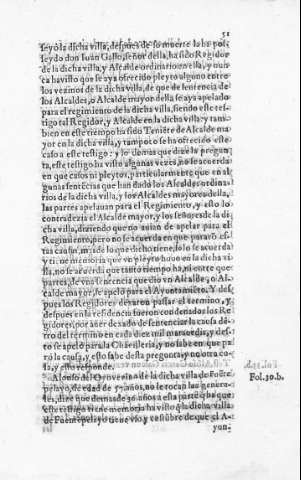 51
seyó la dicha villa, despues de su muerte la ha pos-
seydo don Iuan Gallo, señor della, ha sido Regidor
de la dicha villa, y Alcalde ordinario en ella, y nun
ca ha visto que se aya ofrecido pleyto alguno entre
los vezinos de la dicha villa, de que de sentencia de
los Alcaldes, o Alcalde mayor della se aya apelado
para el regimiento de la dicha villa, siendo este tes-
tigo tal Regidor, y Alcalde en la dicha villa: y tam-
bien en este tiempo ha sido Teniẽte de Alcalde ma
yor en la dicha villa, y tampoco se ha ofrecido este
caso a este testigo: y lo demas que dize la pregun
ta, este testigo ha visto algunas vezes, no se acuerda
en que casos ni pleytos, particularmente que en al
gunas sentẽcias que han dado los Alcaldes ordina
rios de la dicha villa, y los Alcaldes mayores della,
las partes apelauan para el Regimiento, y esto lo
contradezia el Alcalde mayor, y los señores de la di
cha villa, diziendo que no auian de apelar para el
Regimiento, pero no se acuerda en que
mas de lo que dicho tiene, solo se acuerda
y tiene memoria que vn pleyto huuo en la dicha vi
lla, no se acuerda que tanto tiempo ha, ni entre que
partes, de vna sentencia que dio vn Alcalde, o Al-
calde mayor, se apelò para el Ayuntamiẽto. Y des-
pues los Regidores dexaron passar el termino, y
despues en la residencia fueron condenados los Re
gidores, por auer dexado de sentenciar la causa dẽ-
tro del termino en cada diez mil marauedis, y des-
to se apelò para la Chãcilleria, y no sabe en que pa
rò la causa, y esto sabe desta pregunta, y no otra co-
sa, y esto responde.
Alonso de vezino de la dicha villa de Fuẽte
pelayo, de edad de 57 años, no le tocan las genera-
les, dize que demas de 30 años a esta parte que que
este testigo tiene memoria ha visto q̃ la dicha villa
de Fuentepelayo tiene vso y costũbre de que el A-
yun-
Fol.30.b.